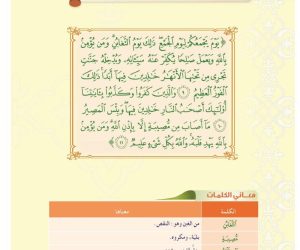 ﴿يَوْمَ يَجْمَعُكُمْ لِيَوْمِ الْجَمْعِ ذَٰلِكَ يَوْمُ التَّغَابُنِ وَمَن يُؤْمِنْ
بِاللَّهِ وَيَعْمَلْ صَالِحًا يُكَفِّرْ عَنْهُ سَيِّئَاتِهِ وَيُدْخِلْهُ جَنَّاتٍ
تَجْرِي مِن تَحْتِهَا الْأَنْهَارُ خَالِدِينَ فِيهَا أَبَدًا ذَٰلِكَ
الْفَوْزُ الْعَظِيمُ ٩ وَالَّذِينَ كَفَرُوا وَكَذَّبُوا بِآيَاتِنَا
أُولَٰئِكَ أَصْحَابُ النَّارِ خَالِدِينَ فِيهَا وَبِئْسَ الْمَصِيرُ
١٠ مَا أَصَابَ مِن مُّصِيبَةٍ إِلَّا بِإِذْنِ اللَّهِ وَمَن يُؤْمِن
بِاللَّهِ يَهْدِ قَلْبَهُ وَاللَّهُ بِكُلِّ شَيْءٍ عَلِيمٌ ١١﴾
معاني الكلمات
الكلمة معناها
التَّغَابُنِ من الغبن وهو: النقص.
مُّصِيبَةٍ بلية، ومكروه.